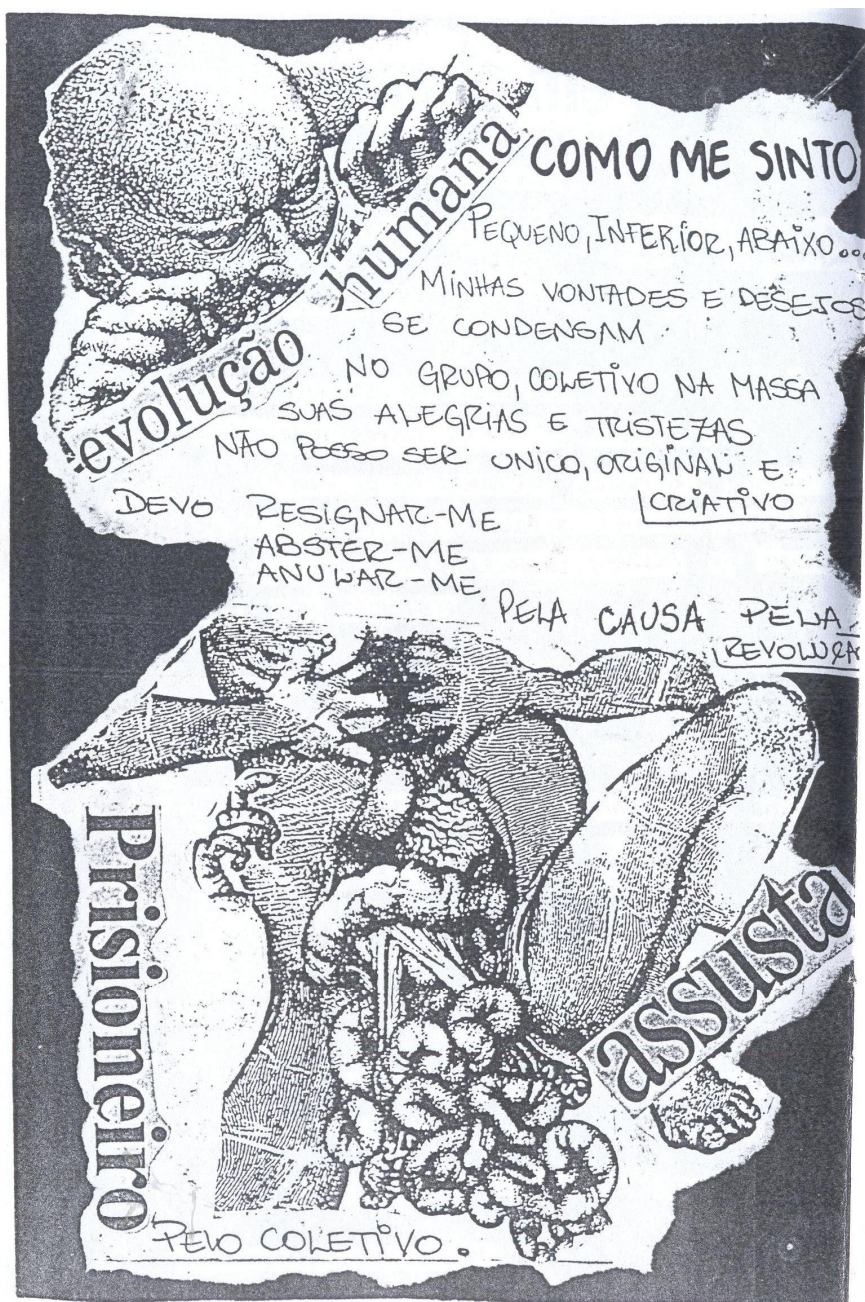 evolução humana
COMO ME SINTO
PEQUENO, INFERIOR, ABAIXO...
MINHAS VONTADES E DESEJOS
SE CONDENSAM
NO GRUPO, COLETIVO NA MASSA
SUAS ALEGRIAS E TRISTEZAS
NÃO POSSO SER UNICO, ORIGINAL E
CRIATIVO
DEVO RESIGNAR-ME
ABSTER-ME
ANULAR-ME
PELA CAUSA PELA
REVOLUÇÃ
Prisioneiro
assusta
PELO COLETIVO.